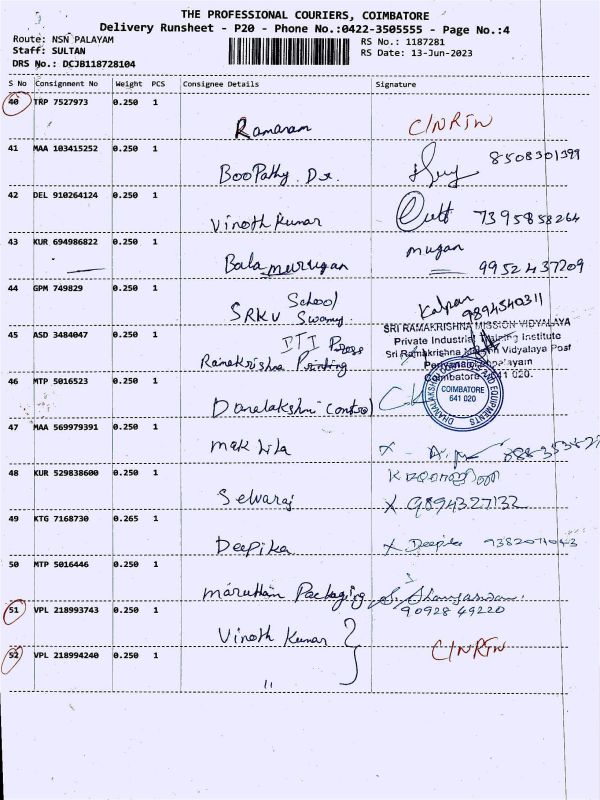 THE PROFESSIONAL COURIERS, COIMBATORE
Delivery Runsheet - P20 - Phone No.:0422-3505555 - Page No.:4
Route: NSN PALAYAM
RS No.: 1187281
Staff: SULTAN
RS Date: 13-Jun-2023
DRS No.: DCJB118728104
S No Consignment No Weight PCS Consignee Details Signature
40 TRP 7527973 0.250 1
Ramaram C/NRTN
41 MAA 103415252 0.250 1
BooPathy. Dx. 8508301399
42 DEL 910264124 0.250 1
Vinoth Kumar 7395858264
43 KUR 694986822 0.250 1
Bala murugan mugan 9952437209
44 GPM 749829 0.250 1
SRKV School Swamy. Kalpan 9894540311
SRI RAMAKRISHNA MISSION VIDYALAYA
45 ASD 3484047 0.250 1
Private Industrial Training Institute
ITI Press
Sri Ramakrishna Vidyalaya Post
Ramakrishna Printing
46 MTP 5016523 0.250 1
Coimbatore 641 020.
COIMBATORE
641 020
Danalakshmi Control
47 MAA 569979391 0.250 1
mak lila
48 KUR 529838600 0.250 1
Selvaraj X 9894327132
49 KTG 7168730 0.265 1
Deepika X Deepika 9382071043
50 MTP 5016446 0.250 1
maruthin Packaging
51 VPL 218993743 0.250 1
90928 49220
Vinoth Kumar
52 VPL 218994240 0.250 1
C/NRTN
"